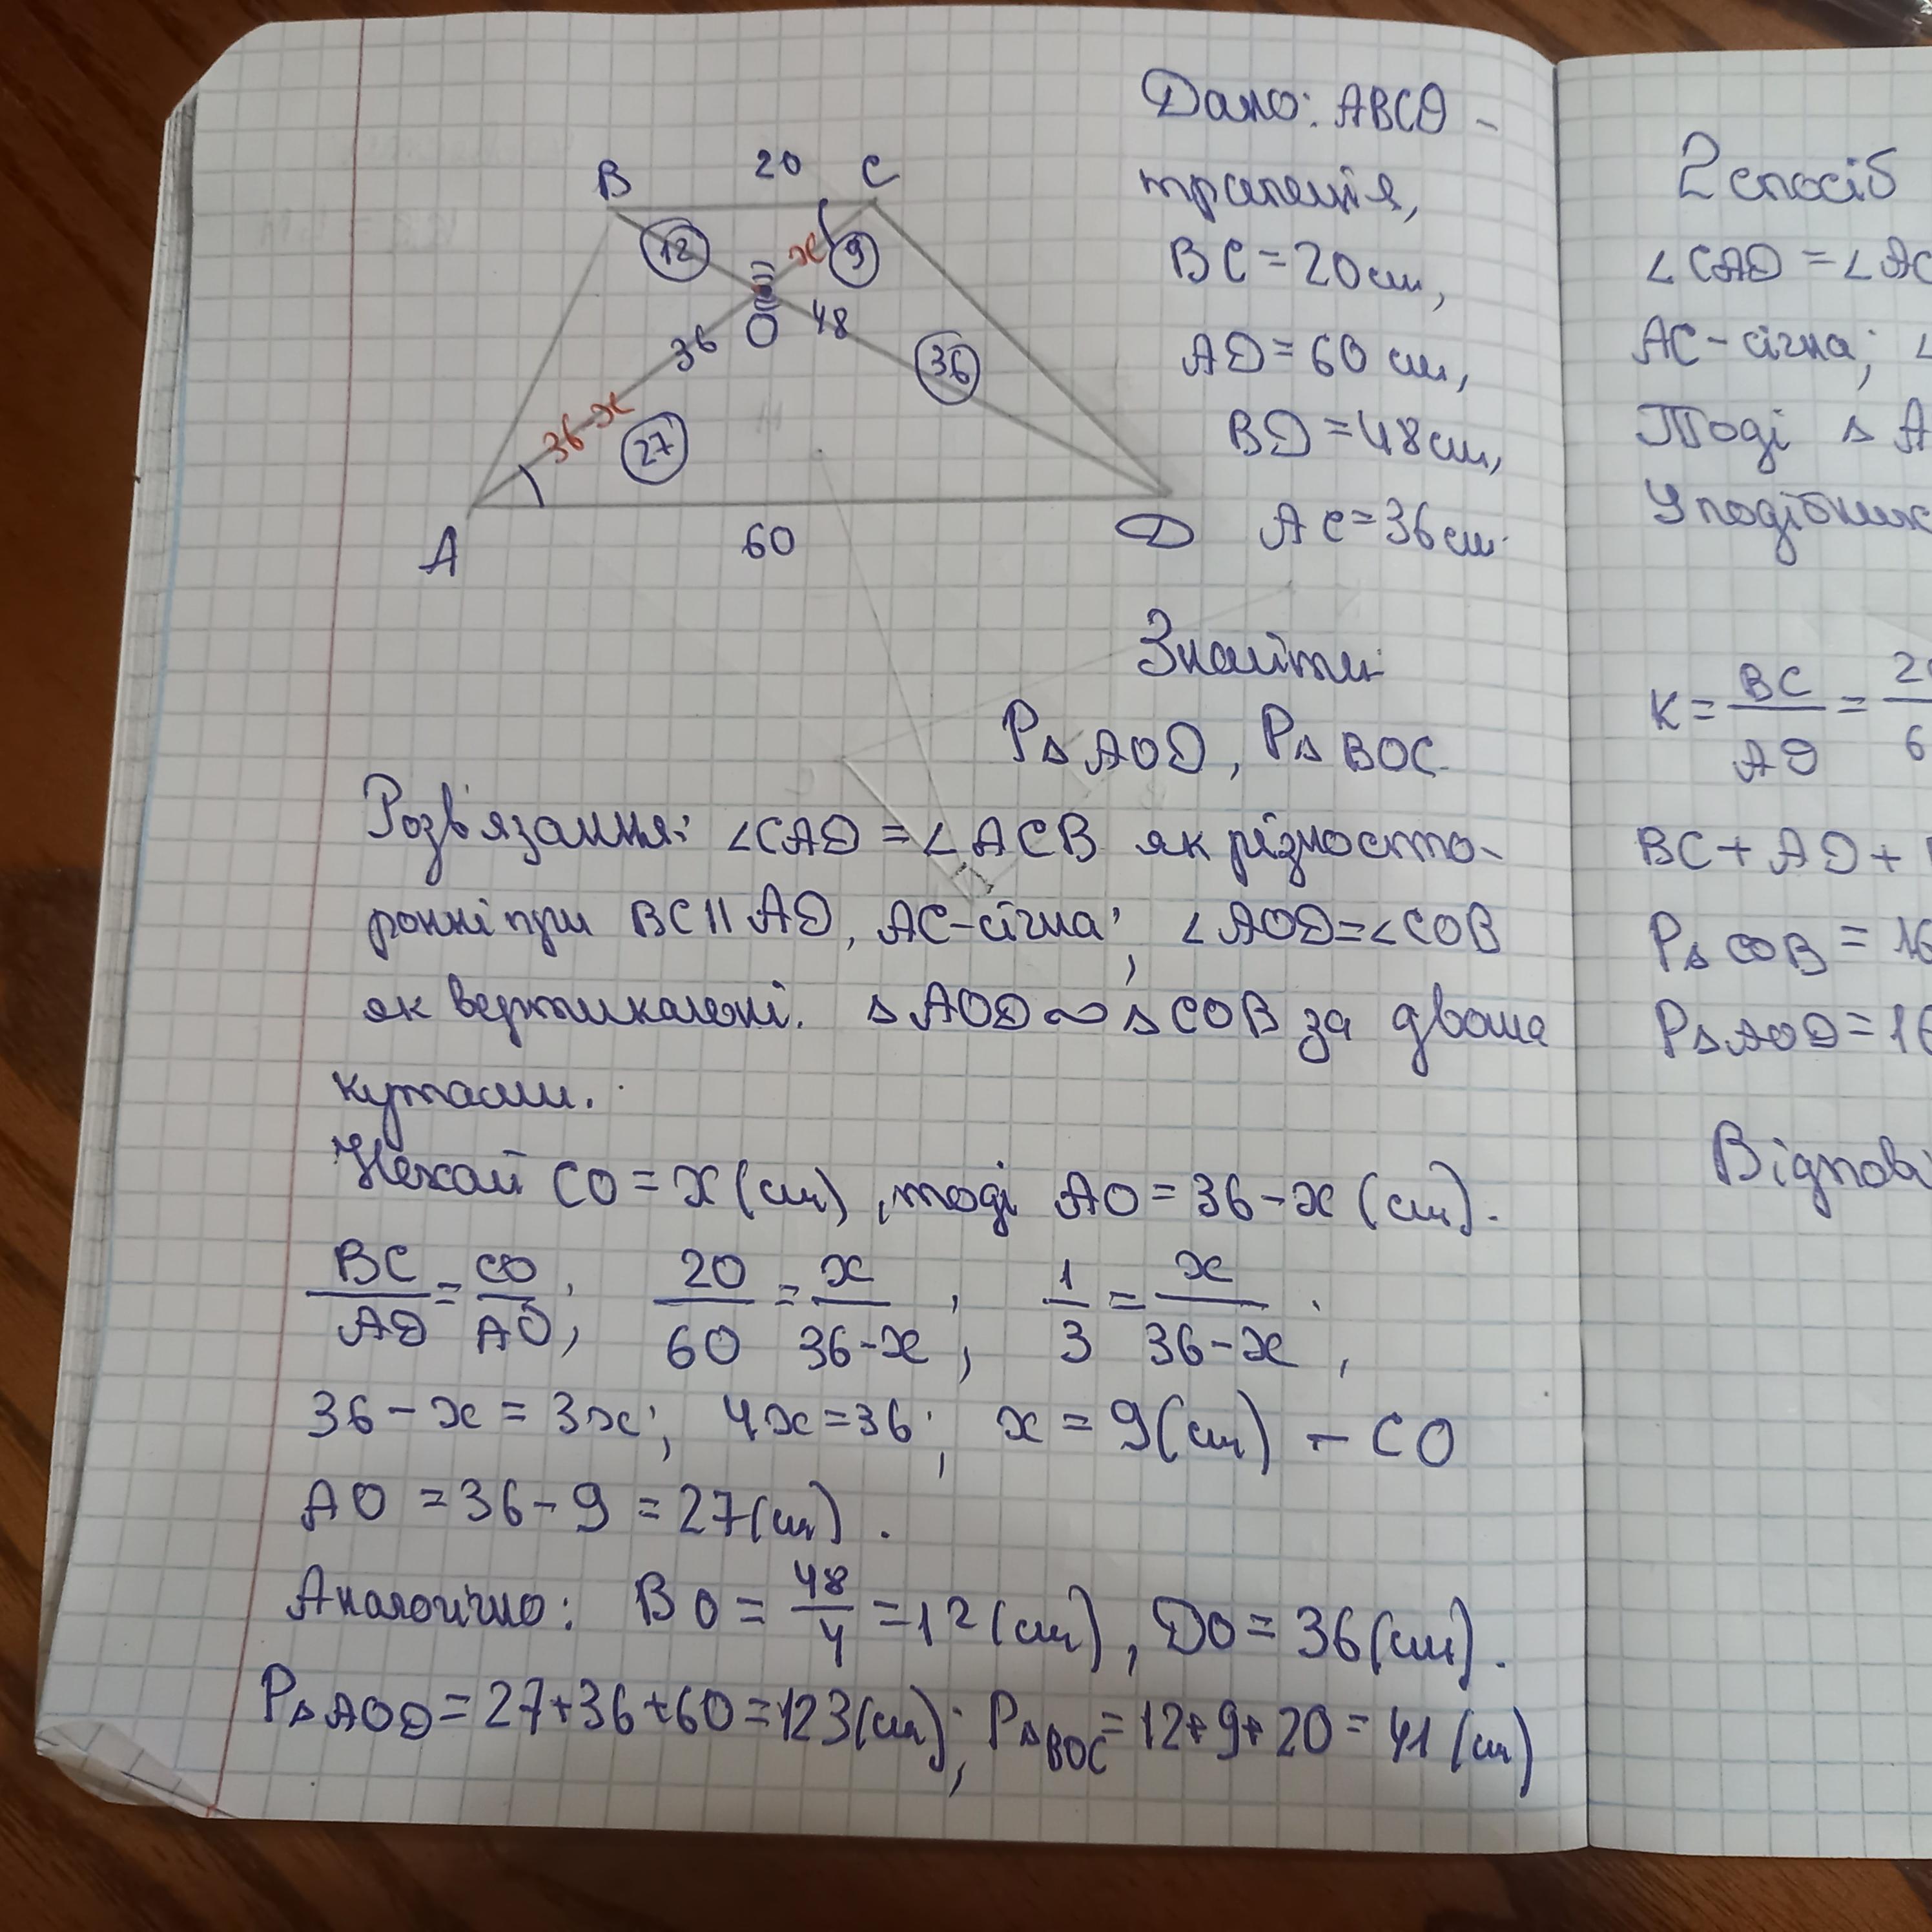 B 20 C
12 x 9
O 48
36 36
36-x 27
A 60 D
Дано: ABCD -
трапеція,
BC = 20 см,
AD = 60 см,
BD = 48 см,
AC = 36 см.
Знайти
P△AOD, P△BOC
Розв'язання: ∠CAD = ∠ACB як різносто-
ронні при BC || AD, AC - січна; ∠AOD = ∠COB
як вертикальні. △AOD ∾ △COB за двома
кутами.
Нехай CO = x (см), тоді AO = 36 - x (см).
BC/AD = CO/AO; 20/60 = x/36-x; 1/3 = x/36-x;
36 - x = 3x; 4x = 36; x = 9 (см) - CO
AO = 36 - 9 = 27 (см).
Аналогічно: BO = 48/4 = 12 (см), DO = 36 (см).
P△AOD = 27+36+60 = 123 (см); P△BOC = 12+9+20 = 41 (см)
2 спосіб
∠CAD = ∠AC
AC - січна; ∠
Тоді △ A
У подібних
K = BC/AD = 2 /6
BC + AD +
P△COB = 16
P△AOD = 16
Відпові